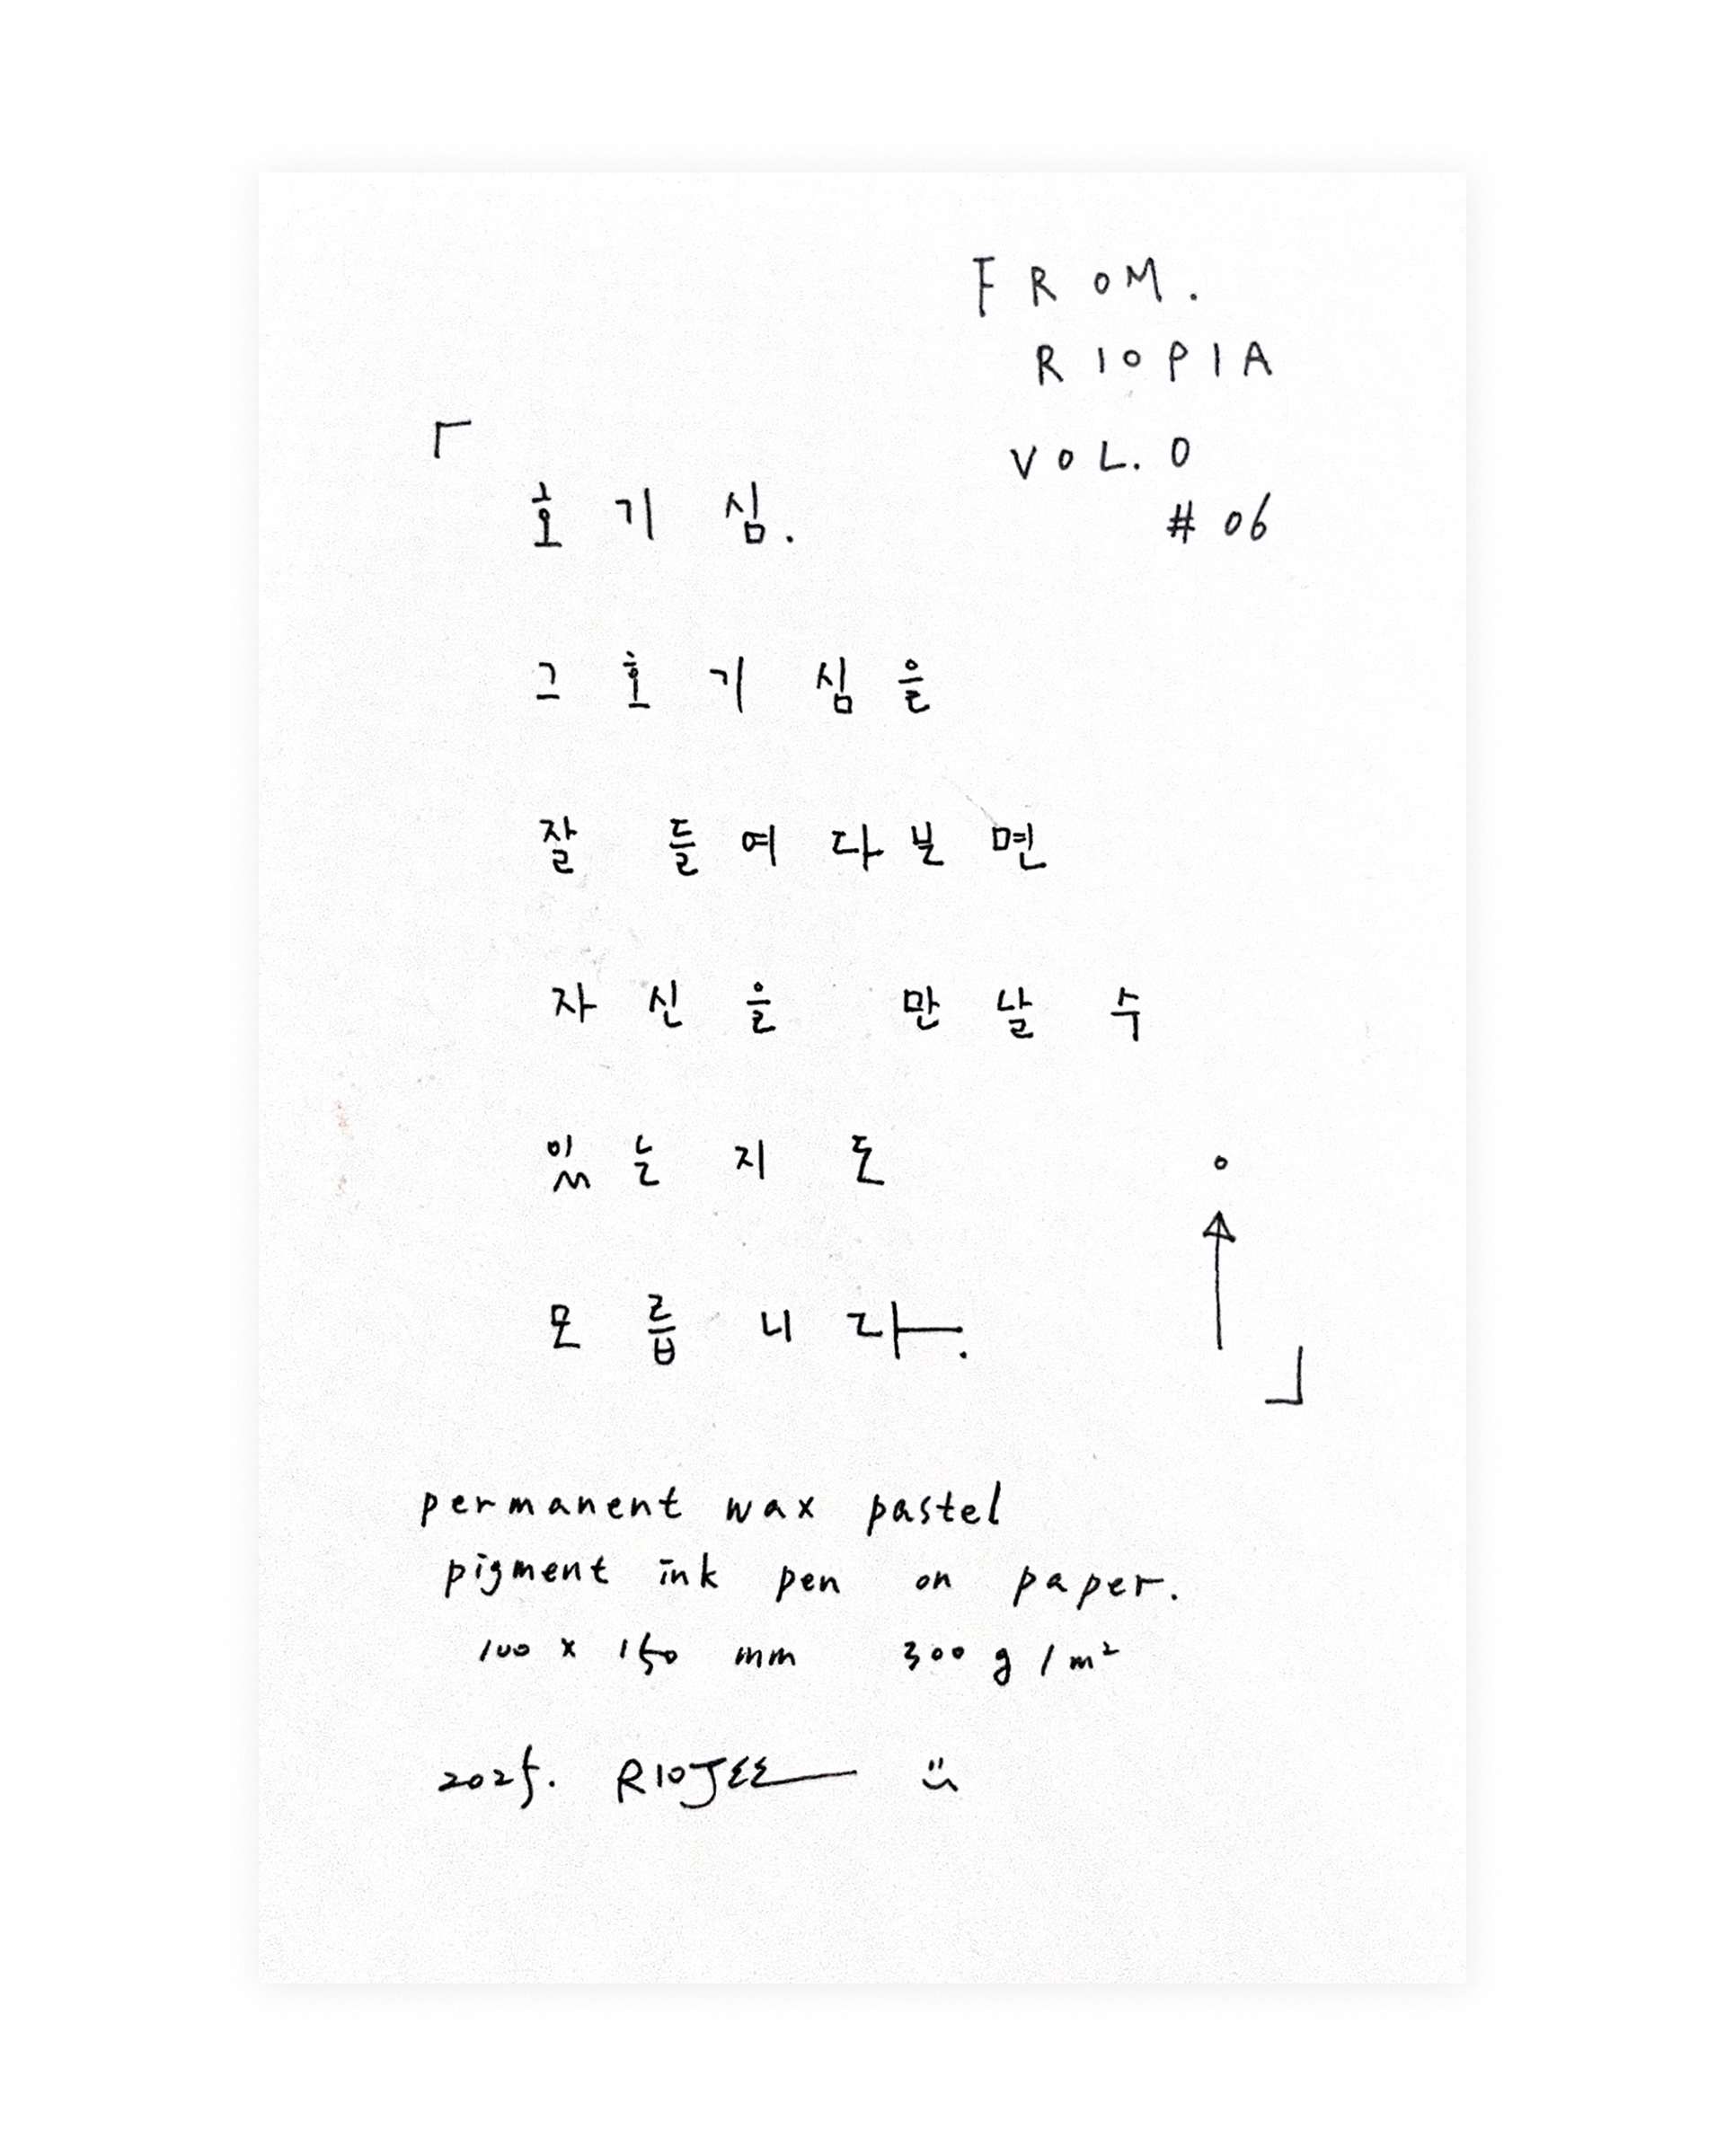 FROM.
RIOPIA
VOL. 0
# 06
「
호기심.
그 호기심을
잘 들여다보면
자신을 만날 수
있는지도
모릅니다—.
」
permanent wax pastel
pigment ink pen on paper.
100 x 150 mm 300 g / m²
2025. RIOJEE